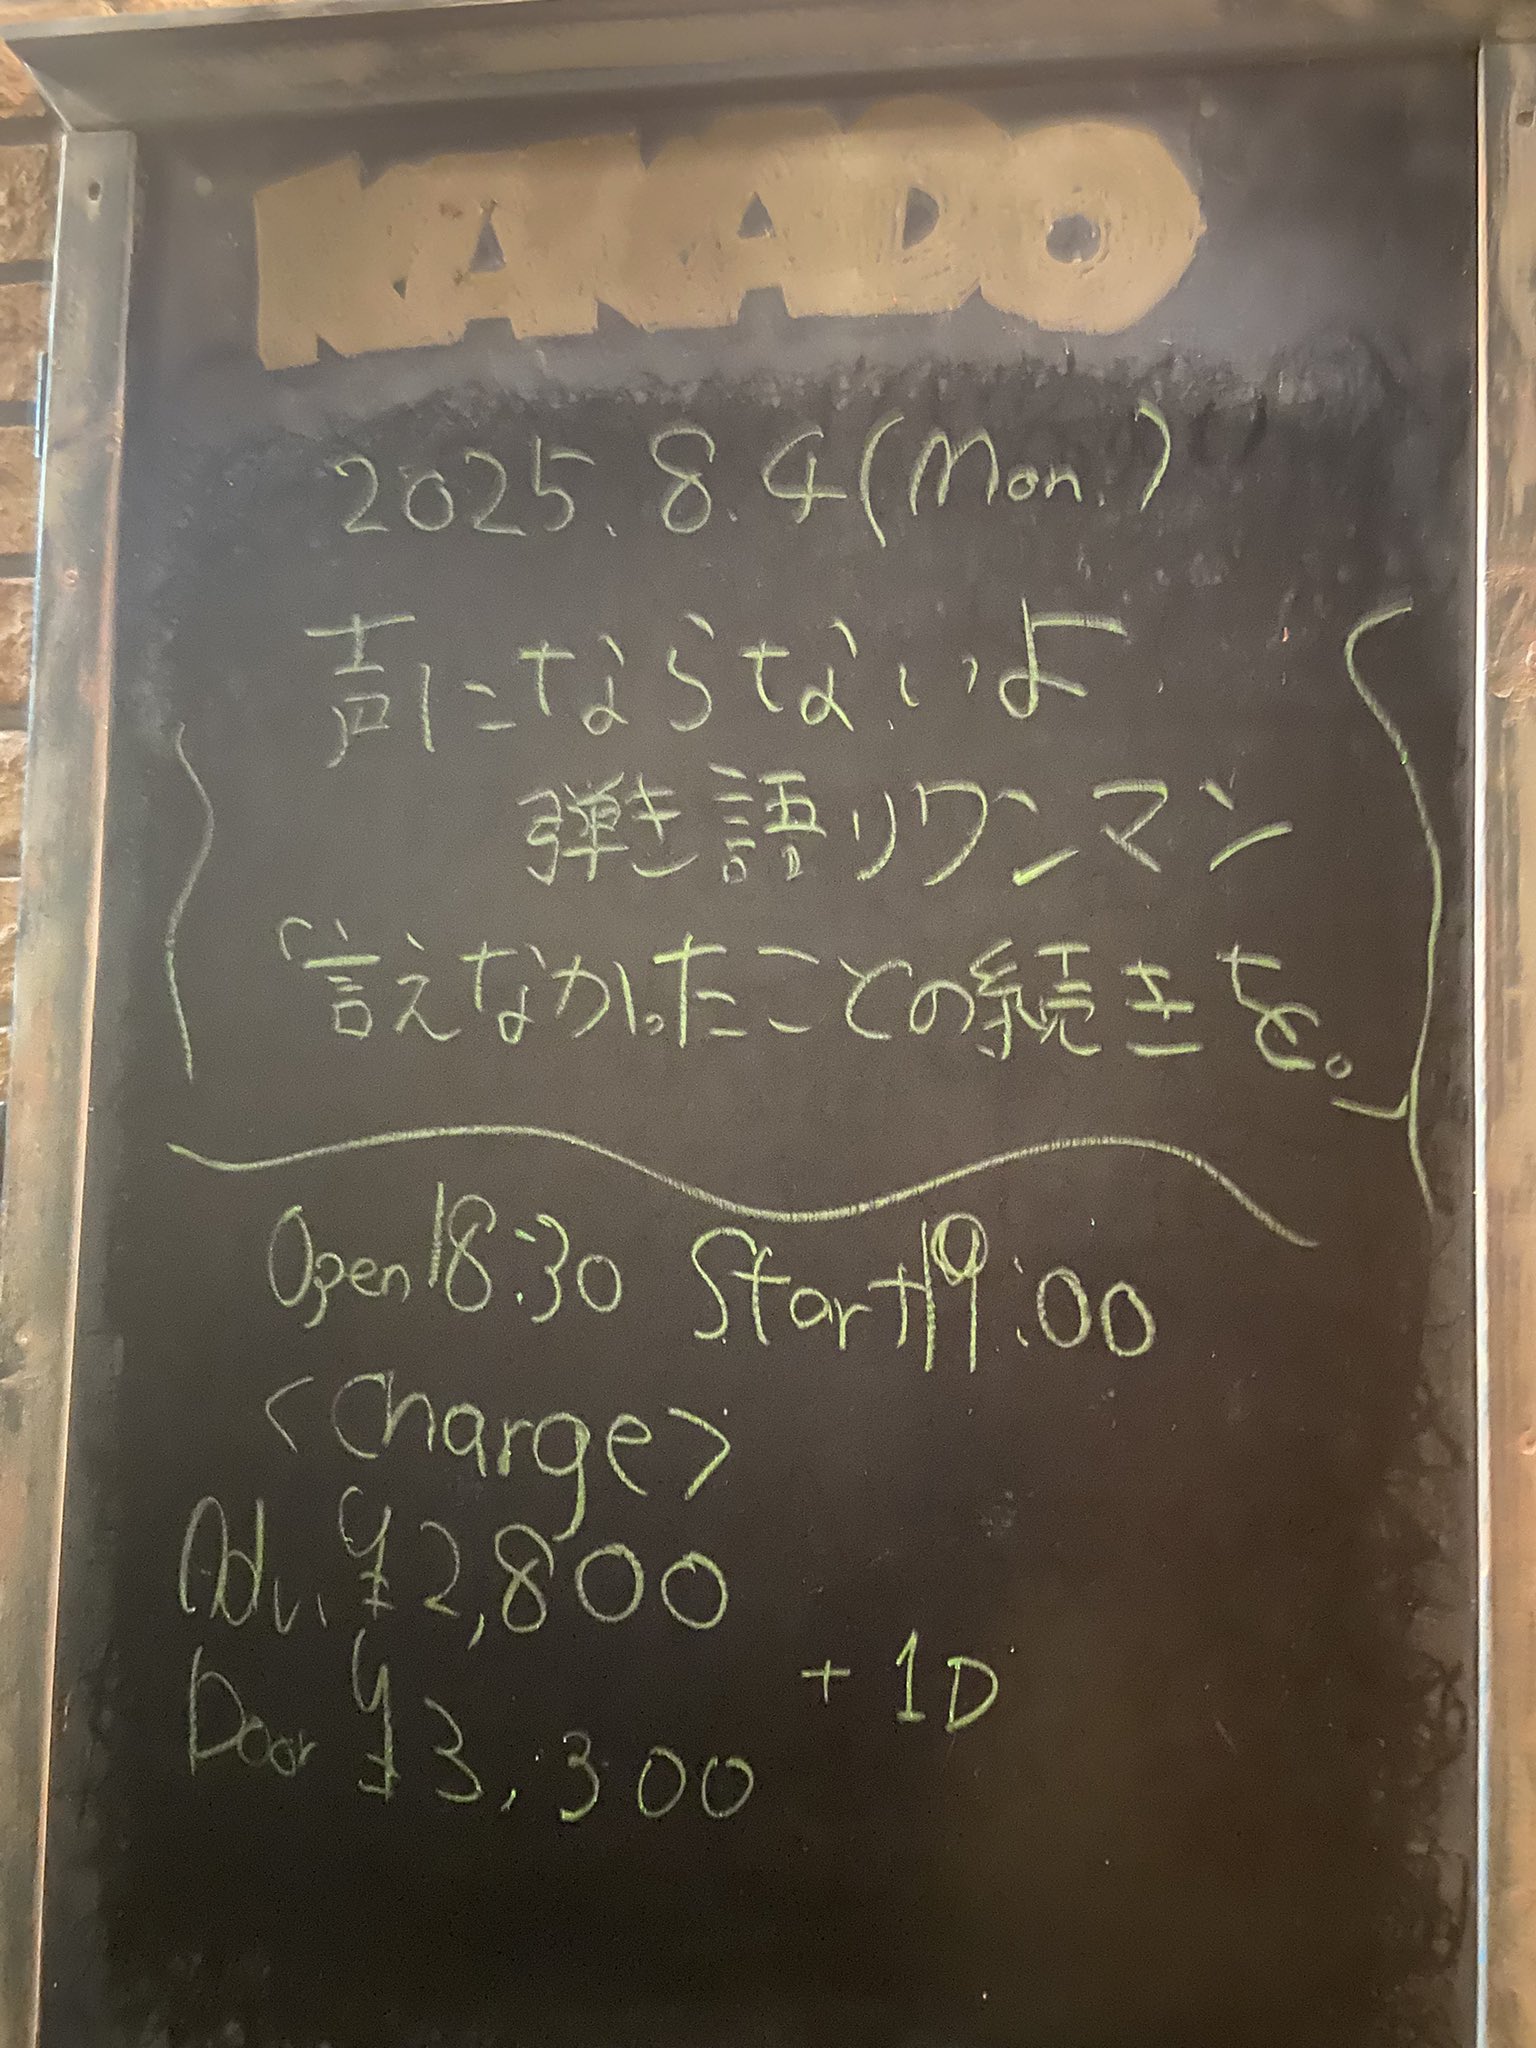 KAKADO
2025.8.4(Mon.)
声にならないよ
弾き語りワンマン
「言えなかったことの続きを。」
Open18:30 Start19:00
<Charge>
Adv. ¥2,800
+1D
Door ¥3,300